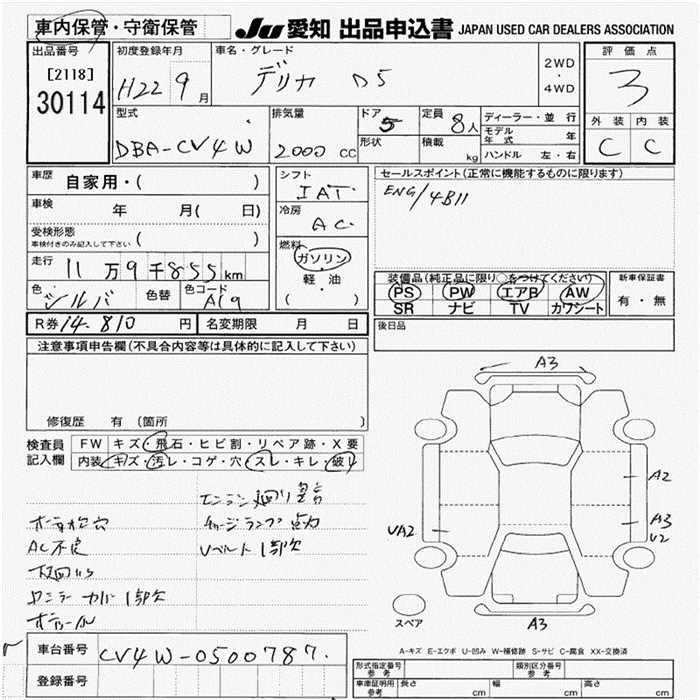 車内保管・守衛保管
Ju 愛知 出品申込書 JAPAN USED CAR DEALERS ASSOCIATION
出品番号
[2118]
30114
初度登録年月
H22 9月
車名・グレード
デリカ D5
2WD
・
4WD
評価点
3
外装 内装
C C
型式
DBA-CV4W
排気量
2000 cc
ドア
5
形状
定員
8人
積載
kg
ディーラー・並行
モデル年式 年
ハンドル 左・右
車歴
自家用・( )
車検
年 月( 日)
受検形態
車検付きのみ記入して下さい ( )
走行
11万9千855km
色
シルバ
色替
色コード
A19
シフト
IAT
冷房
AC
燃料
ガソリン
・
軽・油
( )
セールスポイント(正常に機能するものに限ります)
ENG/4B11
装備品(純正品に限り○をつけてください)
PS PW エアB AW
SR ナビ TV カワシート
新車保証書
有・無
R券 14.810 円
名変期限 月 日
後日品
注意事項申告欄(不具合内容等は具体的に記入して下さい)
修復歴 有 (箇所 )
検査員
記入欄
FW キズ・飛石・ヒビ割・リペア跡・X要
内装 キズ・汚レ・コゲ・穴・スレ・キレ・破レ
エンジン廻り異音
チャージランプ点灯
AC不良
Vベルト1部欠
下廻りS
カバー1部欠
A3
A2
A3
V2
UA2
A3
スペア
A-キズ E-エクボ U-凹み W-補修跡 S-サビ C-腐食 XX-交換済
車台番号
CV4W-0500787.
登録番号
形式指定番号
参考
類別区分番号
参考
車庫証明用
参考
長さ cm 幅 cm 高さ cm